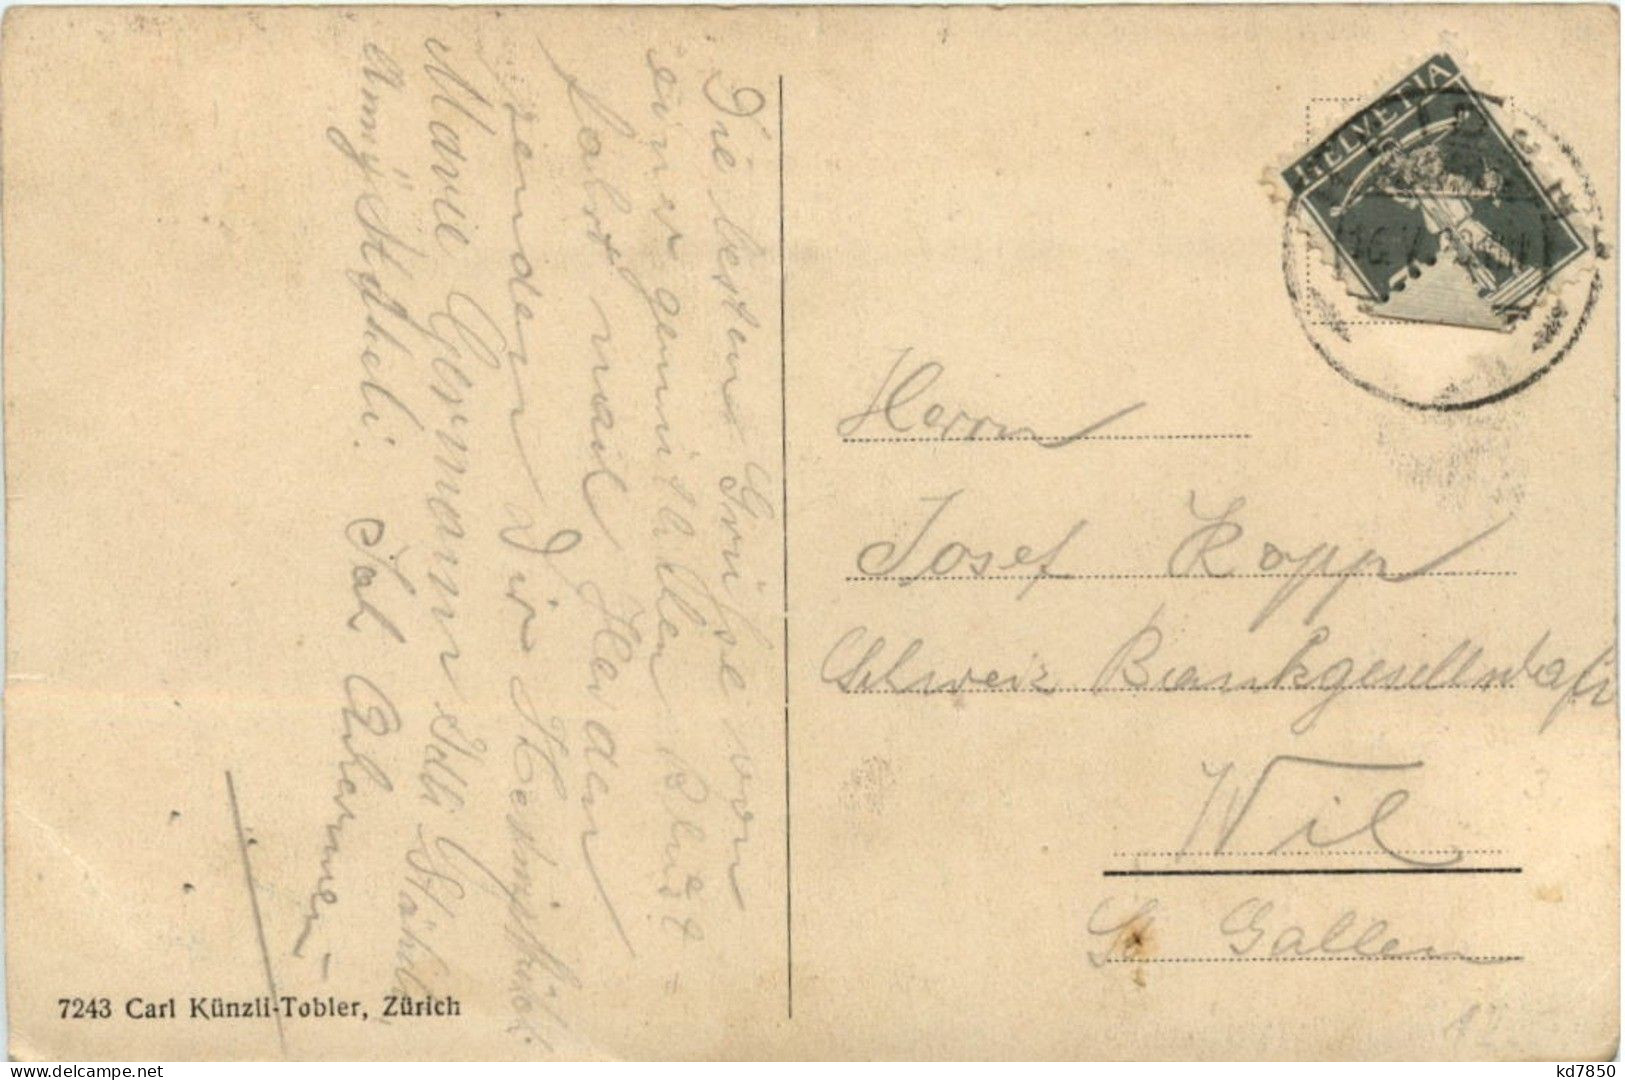 Die besten Grüsse von
einer gemütlichen Blust=
fahrt nach Heiden
senden Dir
Marie Germann Idli Stäheli,
Anny Stäheli.
HELVETIA
Herrn
Josef Kopp
Schweiz Bankgesellschaft
Wil
St Gallen
7243 Carl Künzli-Tobler, Zürich
kd7850